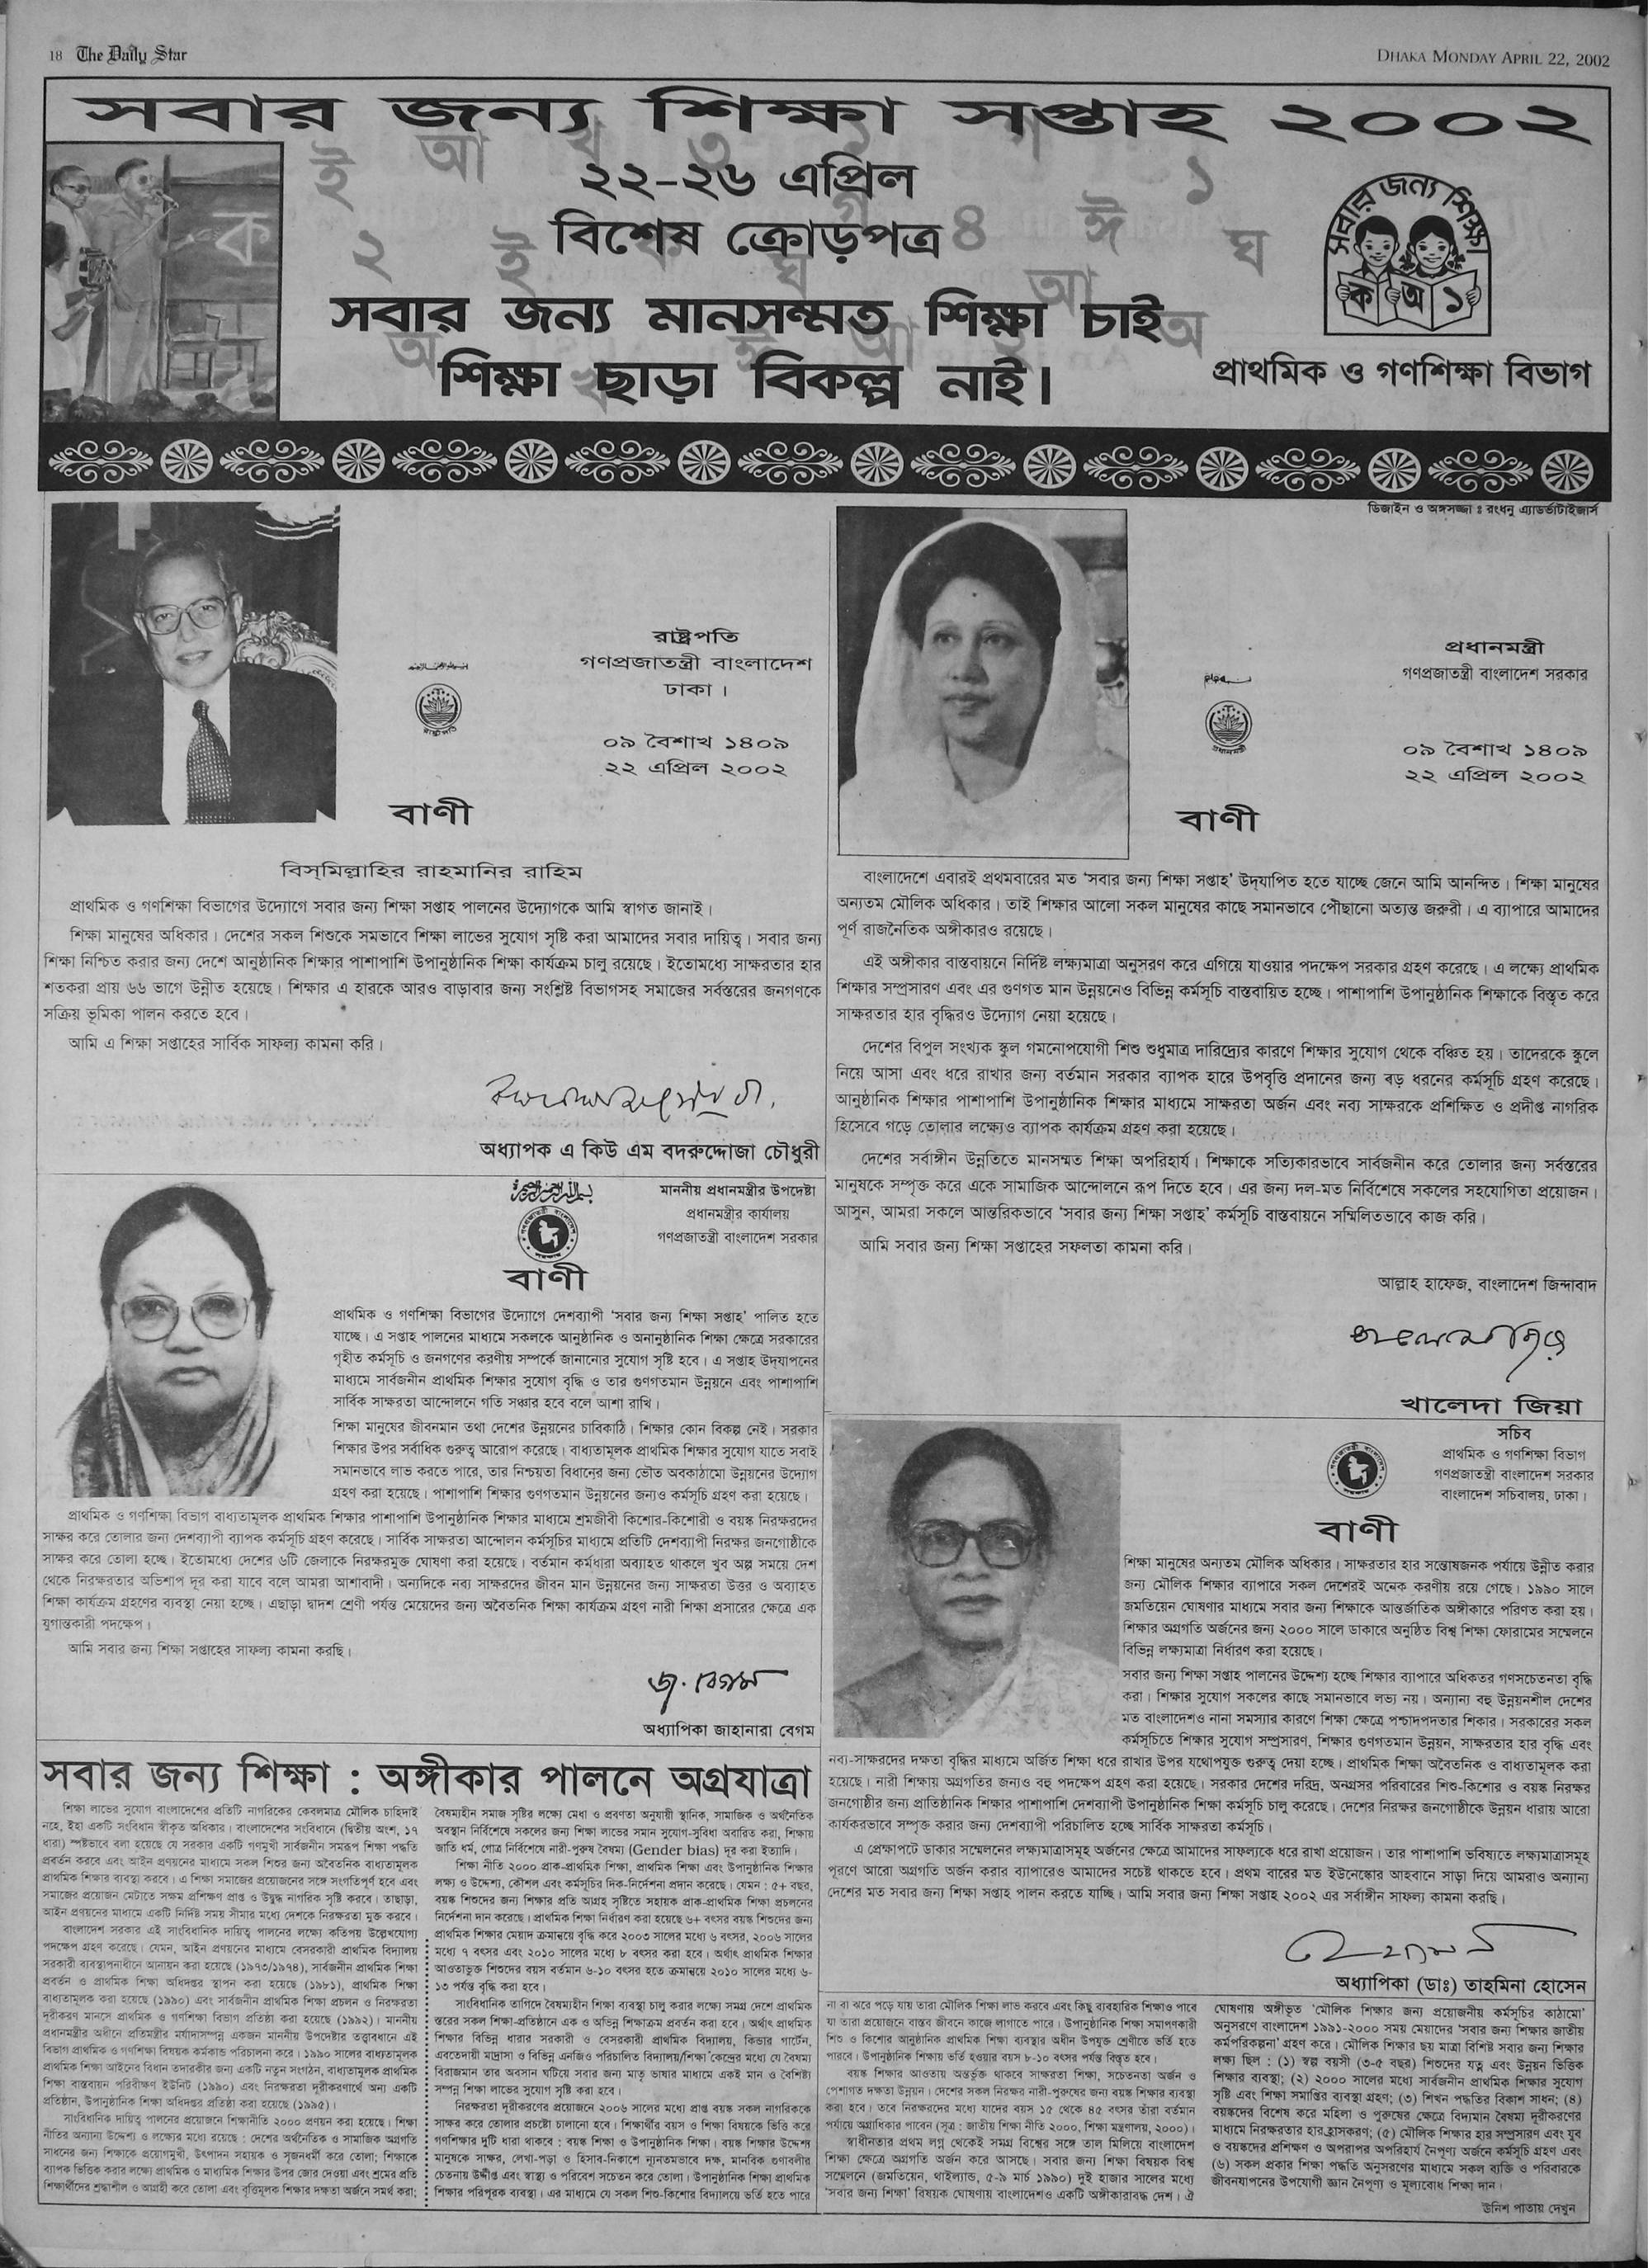 18 The Daily Star
DHAKA MONDAY APRIL 22, 2002
সবার জন্য শিক্ষা সপ্তাহ ২০০২
২২-২৬ এপ্রিল
বিশেষ ক্রোড়পত্র
সবার জন্য মানসম্মত শিক্ষা চাই
শিক্ষা ছাড়া বিকল্প নাই।
সবার জন্য শিক্ষা
ক অ ১
প্রাথমিক ও গণশিক্ষা বিভাগ
ডিজাইন ও অঙ্গসজ্জা ঃ রংধনু এ্যাডর্ভাটাইজার্স
রাষ্ট্রপতি
গণপ্রজাতন্ত্রী বাংলাদেশ
ঢাকা ।
০৯ বৈশাখ ১৪০৯
২২ এপ্রিল ২০০২
বাণী
বিস্‌মিল্লাহির রাহমানির রাহিম
প্রাথমিক ও গণশিক্ষা বিভাগের উদ্যোগে সবার জন্য শিক্ষা সপ্তাহ পালনের উদ্যোগকে আমি স্বাগত জানাই।
শিক্ষা মানুষের অধিকার। দেশের সকল শিশুকে সমভাবে শিক্ষা লাভের সুযোগ সৃষ্টি করা আমাদের সবার দায়িত্ব। সবার জন্য
শিক্ষা নিশ্চিত করার জন্য দেশে আনুষ্ঠানিক শিক্ষার পাশাপাশি উপানুষ্ঠানিক শিক্ষা কার্যক্রম চালু রয়েছে। ইতোমধ্যে সাক্ষরতার হার
শতকরা প্রায় ৬৬ ভাগে উন্নীত হয়েছে। শিক্ষার এ হারকে আরও বাড়াবার জন্য সংশ্লিষ্ট বিভাগসহ সমাজের সর্বস্তরের জনগণকে
সক্রিয় ভূমিকা পালন করতে হবে।
আমি এ শিক্ষা সপ্তাহের সার্বিক সাফল্য কামনা করি।
অধ্যাপক এ কিউ এম বদরুদ্দোজা চৌধুরী
প্রধানমন্ত্রী
গণপ্রজাতন্ত্রী বাংলাদেশ সরকার
০৯ বৈশাখ ১৪০৯
২২ এপ্রিল ২০০২
বাণী
বাংলাদেশে এবারই প্রথমবারের মত ‘সবার জন্য শিক্ষা সপ্তাহ’ উদ্‌যাপিত হতে যাচ্ছে জেনে আমি আনন্দিত। শিক্ষা মানুষের
অন্যতম মৌলিক অধিকার। তাই শিক্ষার আলো সকল মানুষের কাছে সমানভাবে পৌঁছানো অত্যন্ত জরুরী। এ ব্যাপারে আমাদের
পূর্ণ রাজনৈতিক অঙ্গীকারও রয়েছে।
এই অঙ্গীকার বাস্তবায়নে নির্দিষ্ট লক্ষ্যমাত্রা অনুসরণ করে এগিয়ে যাওয়ার পদক্ষেপ সরকার গ্রহণ করেছে। এ লক্ষ্যে প্রাথমিক
শিক্ষার সম্প্রসারণ এবং এর গুণগত মান উন্নয়নেও বিভিন্ন কর্মসূচি বাস্তবায়িত হচ্ছে। পাশাপাশি উপানুষ্ঠানিক শিক্ষাকে বিস্তৃত করে
সাক্ষরতার হার বৃদ্ধিরও উদ্যোগ নেয়া হয়েছে।
দেশের বিপুল সংখ্যক স্কুল গমনোপযোগী শিশু শুধুমাত্র দারিদ্র্যের কারণে শিক্ষার সুযোগ থেকে বঞ্চিত হয়। তাদেরকে স্কুলে
নিয়ে আসা এবং ধরে রাখার জন্য বর্তমান সরকার ব্যাপক হারে উপবৃত্তি প্রদানের জন্য বড় ধরনের কর্মসূচি গ্রহণ করেছে।
আনুষ্ঠানিক শিক্ষার পাশাপাশি উপানুষ্ঠানিক শিক্ষার মাধ্যমে সাক্ষরতা অর্জন এবং নব্য সাক্ষরকে প্রশিক্ষিত ও প্রদীপ্ত নাগরিক
হিসেবে গড়ে তোলার লক্ষ্যেও ব্যাপক কার্যক্রম গ্রহণ করা হয়েছে।
দেশের সর্বাঙ্গীন উন্নতিতে মানসম্মত শিক্ষা অপরিহার্য। শিক্ষাকে সত্যিকারভাবে সার্বজনীন করে তোলার জন্য সর্বস্তরের
মানুষকে সম্পৃক্ত করে একে সামাজিক আন্দোলনে রূপ দিতে হবে। এর জন্য দল-মত নির্বিশেষে সকলের সহযোগিতা প্রয়োজন।
আসুন, আমরা সকলে আন্তরিকভাবে ‘সবার জন্য শিক্ষা সপ্তাহ’ কর্মসূচি বাস্তবায়নে সম্মিলিতভাবে কাজ করি।
আমি সবার জন্য শিক্ষা সপ্তাহের সফলতা কামনা করি।
আল্লাহ হাফেজ, বাংলাদেশ জিন্দাবাদ
খালেদা জিয়া
মাননীয় প্রধানমন্ত্রীর উপদেষ্টা
প্রধানমন্ত্রীর কার্যালয়
গণপ্রজাতন্ত্রী বাংলাদেশ সরকার
বাণী
প্রাথমিক ও গণশিক্ষা বিভাগের উদ্যোগে দেশব্যাপী ‘সবার জন্য শিক্ষা সপ্তাহ’ পালিত হতে
যাচ্ছে। এ সপ্তাহ পালনের মাধ্যমে সকলকে আনুষ্ঠানিক ও অনানুষ্ঠানিক শিক্ষা ক্ষেত্রে সরকারের
গৃহীত কর্মসূচি ও জনগণের করণীয় সম্পর্কে জানানোর সুযোগ সৃষ্টি হবে। এ সপ্তাহ উদ্‌যাপনের
মাধ্যমে সার্বজনীন প্রাথমিক শিক্ষার সুযোগ বৃদ্ধি ও তার গুণগতমান উন্নয়নে এবং পাশাপাশি
সার্বিক সাক্ষরতা আন্দোলনে গতি সঞ্চার হবে বলে আশা রাখি।
শিক্ষা মানুষের জীবনমান তথা দেশের উন্নয়নের চাবিকাঠি। শিক্ষার কোন বিকল্প নেই। সরকার
শিক্ষার উপর সর্বাধিক গুরুত্ব আরোপ করেছে। বাধ্যতামূলক প্রাথমিক শিক্ষার সুযোগ যাতে সবাই
সমানভাবে লাভ করতে পারে, তার নিশ্চয়তা বিধানের জন্য ভৌত অবকাঠামো উন্নয়নের উদ্যোগ
গ্রহণ করা হয়েছে। পাশাপাশি শিক্ষার গুণগতমান উন্নয়নের জন্যও কর্মসূচি গ্রহণ করা হয়েছে।
প্রাথমিক ও গণশিক্ষা বিভাগ বাধ্যতামূলক প্রাথমিক শিক্ষার পাশাপাশি উপানুষ্ঠানিক শিক্ষার মাধ্যমে শ্রমজীবী কিশোর-কিশোরী ও বয়স্ক নিরক্ষরদের
সাক্ষর করে তোলার জন্য দেশব্যাপী ব্যাপক কর্মসূচি গ্রহণ করেছে। সার্বিক সাক্ষরতা আন্দোলন কর্মসূচির মাধ্যমে প্রতিটি দেশব্যাপী নিরক্ষর জনগোষ্ঠীকে
সাক্ষর করে তোলা হচ্ছে। ইতোমধ্যে দেশের ৬টি জেলাকে নিরক্ষরমুক্ত ঘোষণা করা হয়েছে। বর্তমান কর্মধারা অব্যাহত থাকলে খুব অল্প সময়ে দেশ
থেকে নিরক্ষরতার অভিশাপ দূর করা যাবে বলে আমরা আশাবাদী। অন্যদিকে নব্য সাক্ষরদের জীবন মান উন্নয়নের জন্য সাক্ষরতা উত্তর ও অব্যাহত
শিক্ষা কার্যক্রম গ্রহণের ব্যবস্থা নেয়া হচ্ছে। এছাড়া দ্বাদশ শ্রেণী পর্যন্ত মেয়েদের জন্য অবৈতনিক শিক্ষা কার্যক্রম গ্রহণ নারী শিক্ষা প্রসারের ক্ষেত্রে এক
যুগান্তকারী পদক্ষেপ।
আমি সবার জন্য শিক্ষা সপ্তাহের সাফল্য কামনা করছি।
অধ্যাপিকা জাহানারা বেগম
সচিব
প্রাথমিক ও গণশিক্ষা বিভাগ
গণপ্রজাতন্ত্রী বাংলাদেশ সরকার
বাংলাদেশ সচিবালয়, ঢাকা।
বাণী
শিক্ষা মানুষের অন্যতম মৌলিক অধিকার। সাক্ষরতার হার সন্তোষজনক পর্যায়ে উন্নীত করার
জন্য মৌলিক শিক্ষার ব্যাপারে সকল দেশেরই অনেক করণীয় রয়ে গেছে। ১৯৯০ সালে
জমতিয়েন ঘোষণার মাধ্যমে সবার জন্য শিক্ষাকে আন্তর্জাতিক অঙ্গীকারে পরিণত করা হয়।
শিক্ষার অগ্রগতি অর্জনের জন্য ২০০০ সালে ডাকারে অনুষ্ঠিত বিশ্ব শিক্ষা ফোরামের সম্মেলনে
বিভিন্ন লক্ষ্যমাত্রা নির্ধারণ করা হয়েছে।
সবার জন্য শিক্ষা সপ্তাহ পালনের উদ্দেশ্য হচ্ছে শিক্ষার ব্যাপারে অধিকতর গণসচেতনতা বৃদ্ধি
করা। শিক্ষার সুযোগ সকলের কাছে সমানভাবে লভ্য নয়। অন্যান্য বহু উন্নয়নশীল দেশের
মত বাংলাদেশও নানা সমস্যার কারণে শিক্ষা ক্ষেত্রে পশ্চাদপদতার শিকার। সরকারের সকল
কর্মসূচিতে শিক্ষার সুযোগ সম্প্রসারণ, শিক্ষার গুণগতমান উন্নয়ন, সাক্ষরতার হার বৃদ্ধি এবং
নব্য-সাক্ষরদের দক্ষতা বৃদ্ধির মাধ্যমে অর্জিত শিক্ষা ধরে রাখার উপর যথোপযুক্ত গুরুত্ব দেয়া হচ্ছে। প্রাথমিক শিক্ষা অবৈতনিক ও বাধ্যতামূলক করা
হয়েছে। নারী শিক্ষায় অগ্রগতির জন্যও বহু পদক্ষেপ গ্রহণ করা হয়েছে। সরকার দেশের দরিদ্র, অনগ্রসর পরিবারের শিশু-কিশোর ও বয়স্ক নিরক্ষর
জনগোষ্ঠীর জন্য প্রাতিষ্ঠানিক শিক্ষার পাশাপাশি দেশব্যাপী উপানুষ্ঠানিক শিক্ষা কর্মসূচি চালু করেছে। দেশের নিরক্ষর জনগোষ্ঠীকে উন্নয়ন ধারায় আরো
কার্যকরভাবে সম্পৃক্ত করার জন্য দেশব্যাপী পরিচালিত হচ্ছে সার্বিক সাক্ষরতা কর্মসূচি।
এ প্রেক্ষাপটে ডাকার সম্মেলনের লক্ষ্যমাত্রাসমূহ অর্জনের ক্ষেত্রে আমাদের সাফল্যকে ধরে রাখা প্রয়োজন। তার পাশাপাশি ভবিষ্যতে লক্ষ্যমাত্রাসমূহ
পূরণে আরো অগ্রগতি অর্জন করার ব্যাপারেও আমাদের সচেষ্ট থাকতে হবে। প্রথম বারের মত ইউনেস্কোর আহবানে সাড়া দিয়ে আমরাও অন্যান্য
দেশের মত সবার জন্য শিক্ষা সপ্তাহ পালন করতে যাচ্ছি। আমি সবার জন্য শিক্ষা সপ্তাহ ২০০২ এর সর্বাঙ্গীন সাফল্য কামনা করছি।
অধ্যাপিকা (ডাঃ) তাহমিনা হোসেন
সবার জন্য শিক্ষা : অঙ্গীকার পালনে অগ্রযাত্রা
শিক্ষা লাভের সুযোগ বাংলাদেশের প্রতিটি নাগরিকের কেবলমাত্র মৌলিক চাহিদাই
নহে, ইহা একটি সংবিধান স্বীকৃত অধিকার। বাংলাদেশের সংবিধানে (দ্বিতীয় অংশ, ১৭
ধারা) স্পষ্টভাবে বলা হয়েছে যে সরকার একটি গণমুখী সার্বজনীন সমরূপ শিক্ষা পদ্ধতি
প্রবর্তন করবে এবং আইন প্রণয়নের মাধ্যমে সকল শিশুর জন্য অবৈতনিক বাধ্যতামূলক
প্রাথমিক শিক্ষার ব্যবস্থা করবে। এ শিক্ষা সমাজের প্রয়োজনের সঙ্গে সংগতিপূর্ণ হবে এবং
সমাজের প্রয়োজন মেটাতে সক্ষম প্রশিক্ষণ প্রাপ্ত ও উদ্বুদ্ধ নাগরিক সৃষ্টি করবে। তাছাড়া,
আইন প্রণয়নের মাধ্যমে একটি নির্দিষ্ট সময় সীমার মধ্যে দেশকে নিরক্ষরতা মুক্ত করবে।
বাংলাদেশ সরকার এই সাংবিধানিক দায়িত্ব পালনের লক্ষ্যে কতিপয় উল্লেখযোগ্য
পদক্ষেপ গ্রহণ করেছে। যেমন, আইন প্রণয়নের মাধ্যমে বেসরকারী প্রাথমিক বিদ্যালয়
সরকারী ব্যবস্থাপনাধীনে আনায়ন করা হয়েছে (১৯৭৩/১৯৭৪), সার্বজনীন প্রাথমিক শিক্ষা
প্রবর্তন ও প্রাথমিক শিক্ষা অধিদপ্তর স্থাপন করা হয়েছে (১৯৮১), প্রাথমিক শিক্ষা
বাধ্যতামূলক করা হয়েছে (১৯৯০) এবং সার্বজনীন প্রাথমিক শিক্ষা প্রচলন ও নিরক্ষরতা
দূরীকরণ মানসে প্রাথমিক ও গণশিক্ষা বিভাগ প্রতিষ্ঠা করা হয়েছে (১৯৯২)। মাননীয়
প্রধানমন্ত্রীর অধীনে প্রতিমন্ত্রীর মর্যাদাসম্পন্ন একজন মাননীয় উপদেষ্টার তত্ত্বাবধানে এই
বিভাগ প্রাথমিক ও গণশিক্ষা বিষয়ক কর্মকান্ড পরিচালনা করে। ১৯৯০ সালের বাধ্যতামূলক
প্রাথমিক শিক্ষা আইনের বিধান তদারকীর জন্য একটি নতুন সংগঠন, বাধ্যতামূলক প্রাথমিক
শিক্ষা বাস্তবায়ন পরিবীক্ষণ ইউনিট (১৯৯০) এবং নিরক্ষরতা দূরীকরণার্থে অন্য একটি
প্রতিষ্ঠান, উপানুষ্ঠানিক শিক্ষা অধিদপ্তর প্রতিষ্ঠা করা হয়েছে (১৯৯৫)।
সাংবিধানিক দায়িত্ব পালনের প্রয়োজনে শিক্ষানীতি ২০০০ প্রণয়ন করা হয়েছে। শিক্ষা
নীতির অন্যান্য উদ্দেশ্য ও লক্ষ্যের মধ্যে রয়েছে : দেশের অর্থনৈতিক ও সামাজিক অগ্রগতি
সাধনের জন্য শিক্ষাকে প্রয়োগমুখী, উৎপাদন সহায়ক ও সৃজনধর্মী করে তোলা; শিক্ষাকে
ব্যাপক ভিত্তিক করার লক্ষ্যে প্রাথমিক ও মাধ্যমিক শিক্ষার উপর জোর দেওয়া এবং শ্রমের প্রতি
শিক্ষার্থীদের শ্রদ্ধাশীল ও আগ্রহী করে তোলা এবং বৃত্তিমূলক শিক্ষার দক্ষতা অর্জনে সমর্থ করা;
বৈষম্যহীন সমাজ সৃষ্টির লক্ষ্যে মেধা ও প্রবণতা অনুযায়ী স্থানিক, সামাজিক ও অর্থনৈতিক
অবস্থান নির্বিশেষে সকলের জন্য শিক্ষা লাভের সমান সুযোগ-সুবিধা অবারিত করা, শিক্ষায়
জাতি ধর্ম, গোত্র নির্বিশেষে নারী-পুরুষ বৈষম্য (Gender bias) দূর করা ইত্যাদি।
শিক্ষা নীতি ২০০০ প্রাক-প্রাথমিক শিক্ষা, প্রাথমিক শিক্ষা এবং উপানুষ্ঠানিক শিক্ষার
লক্ষ্য ও উদ্দেশ্য, কৌশল এবং কর্মসূচির দিক-নির্দেশনা প্রদান করেছে। যেমন : ৫+ বছর,
বয়স্ক শিশুদের জন্য শিক্ষার প্রতি আগ্রহ সৃষ্টিতে সহায়ক প্রাক-প্রাথমিক শিক্ষা প্রচলনের
নির্দেশনা দান করেছে। প্রাথমিক শিক্ষা নির্ধারণ করা হয়েছে ৬+ বৎসর বয়স্ক শিশুদের জন্য
প্রাথমিক শিক্ষার মেয়াদ ক্রমান্বয়ে বৃদ্ধি করে ২০০৩ সালের মধ্যে ৬ বৎসর, ২০০৬ সালের
মধ্যে ৭ বৎসর এবং ২০১০ সালের মধ্যে ৮ বৎসর করা হবে। অর্থাৎ প্রাথমিক শিক্ষার
আওতাভুক্ত শিশুদের বয়স বর্তমান ৬-১০ বৎসর হতে ক্রমান্বয়ে ২০১০ সালের মধ্যে ৬-
১৩ পর্যন্ত বৃদ্ধি করা হবে।
সাংবিধানিক তাগিদে বৈষম্যহীন শিক্ষা ব্যবস্থা চালু করার লক্ষ্যে সমগ্র দেশে প্রাথমিক
স্তরের সকল শিক্ষা-প্রতিষ্ঠানে এক ও অভিন্ন শিক্ষাক্রম প্রবর্তন করা হবে। অর্থাৎ প্রাথমিক
শিক্ষার বিভিন্ন ধারার সরকারী ও বেসরকারী প্রাথমিক বিদ্যালয়, কিন্ডার গার্টেন,
এবতেদায়ী মাদ্রাসা ও বিভিন্ন এনজিও পরিচালিত বিদ্যালয়/শিক্ষা কেন্দ্রের মধ্যে যে বৈষম্য
বিরাজমান তার অবসান ঘটিয়ে সবার জন্য মাতৃ ভাষার মাধ্যমে একই মান ও বৈশিষ্ট্য
সম্পন্ন শিক্ষা লাভের সুযোগ সৃষ্টি করা হবে।
নিরক্ষরতা দূরীকরণের প্রয়োজনে ২০০৬ সালের মধ্যে প্রাপ্ত বয়স্ক সকল নাগরিককে
সাক্ষর করে তোলার প্রচেষ্টা চালানো হবে। শিক্ষার্থীর বয়স ও শিক্ষা বিষয়কে ভিত্তি করে
গণশিক্ষার দুটি ধারা থাকবে : বয়স্ক শিক্ষা ও উপানুষ্ঠানিক শিক্ষা। বয়স্ক শিক্ষার উদ্দেশ্য
মানুষকে সাক্ষর, লেখা-পড়া ও হিসাব-নিকাশে ন্যুনতমভাবে দক্ষ, মানবিক গুণাবলীর
চেতনায় উদ্দীপ্ত এবং স্বাস্থ্য ও পরিবেশ সচেতন করে তোলা। উপানুষ্ঠানিক শিক্ষা প্রাথমিক
শিক্ষার পরিপূরক ব্যবস্থা। এর মাধ্যমে যে সকল শিশু-কিশোর বিদ্যালয়ে ভর্তি হতে পারে
না বা ঝরে পড়ে যায় তারা মৌলিক শিক্ষা লাভ করবে এবং কিছু ব্যবহারিক শিক্ষাও পাবে
যা তারা প্রয়োজনে বাস্তব জীবনে কাজে লাগাতে পারে। উপানুষ্ঠানিক শিক্ষায় সমাপণকারী
শিশু ও কিশোর আনুষ্ঠানিক প্রাথমিক শিক্ষা ব্যবস্থার অধীন উপযুক্ত শ্রেণীতে ভর্তি হতে
পারবে। উপানুষ্ঠানিক শিক্ষায় ভর্তি হওয়ার বয়স ৮-১০ বৎসর পর্যন্ত বিস্তৃত হবে।
বয়স্ক শিক্ষার আওতায় অন্তর্ভুক্ত থাকবে সাক্ষরতা শিক্ষা, সচেতনতা অর্জন ও
পেশাগত দক্ষতা উন্নয়ন। দেশের সকল নিরক্ষর নারী-পুরুষের জন্য বয়স্ক শিক্ষার ব্যবস্থা
করা হবে। তবে নিরক্ষরদের মধ্যে যাদের বয়স ১৫ থেকে ৪৫ বৎসর তাঁরা বর্তমান
পর্যায়ে অগ্রাধিকার পাবেন (সূত্র : জাতীয় শিক্ষা নীতি ২০০০, শিক্ষা মন্ত্রণালয়, ২০০০)।
স্বাধীনতার প্রথম লগ্ন থেকেই সমগ্র বিশ্বের সঙ্গে তাল মিলিয়ে বাংলাদেশ
শিক্ষা ক্ষেত্রে অগ্রগতি অর্জন করে আসছে। সবার জন্য শিক্ষা বিষয়ক বিশ্ব
সম্মেলনে (জমতিয়েন, থাইল্যান্ড, ৫-৯ মার্চ ১৯৯০) দুই হাজার সালের মধ্যে
‘সবার জন্য শিক্ষা’ বিষয়ক ঘোষণায় বাংলাদেশও একটি অঙ্গীকারাবদ্ধ দেশ। ঐ
ঘোষণায় অঙ্গীভূত ‘মৌলিক শিক্ষার জন্য প্রয়োজনীয় কর্মসূচির কাঠামো’
অনুসরণে বাংলাদেশ ১৯৯১-২০০০ সময় মেয়াদের ‘সবার জন্য শিক্ষার জাতীয়
কর্মপরিকল্পনা’ গ্রহণ করে। মৌলিক শিক্ষার ছয় মাত্রা বিশিষ্ট সবার জন্য শিক্ষার
লক্ষ্য ছিল : (১) স্বল্প বয়সী (৩-৫ বছর) শিশুদের যত্ন এবং উন্নয়ন ভিত্তিক
শিক্ষার ব্যবস্থা; (২) ২০০০ সালের মধ্যে সার্বজনীন প্রাথমিক শিক্ষার সুযোগ
সৃষ্টি এবং শিক্ষা সমাপ্তির ব্যবস্থা গ্রহণ; (৩) শিখন পদ্ধতির বিকাশ সাধন; (৪)
বয়স্কদের বিশেষ করে মহিলা ও পুরুষের ক্ষেত্রে বিদ্যমান বৈষম্য দূরীকরণের
মাধ্যমে নিরক্ষরতার হার হ্রাসকরণ; (৫) মৌলিক শিক্ষার হার সম্প্রসারণ এবং যুব
ও বয়স্কদের প্রশিক্ষণ ও অপরাপর অপরিহার্য নৈপূণ্য অর্জনে কর্মসূচি গ্রহণ এবং
(৬) সকল প্রকার শিক্ষা পদ্ধতি অনুসরণের মাধ্যমে সকল ব্যক্তি ও পরিবারকে
জীবনযাপনের উপযোগী জ্ঞান নৈপুণ্য ও মূল্যবোধ শিক্ষা দান।
উনিশ পাতায় দেখুন